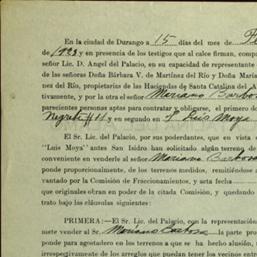 En la ciudad de Durango a 15 días del mes de
de 1923 y en presencia de los testigos que al calce firman, comp
señor Lic. D. Angel del Palacio, en su capacidad de representante
de las señoras Doña Bárbara V. de Martínez del Río y Doña María
nez del Río, propietarias de las Haciendas de Santa Catalina del A
tivamente, y por la otra el señor Mariano Barbo
parecientes personas aptas para contratar y obligarse, el primero de
Negrete #11 y en segundo en Luis Moya
El Sr. Lic. del Palacio, por sus poderdantes, que en vista
"Luis Moya" antes San Isidro han solicitado algún terreno de
conveniente en venderle al señor Mariano Barbosa
ponde proporcionalmente, de los terrenos medidos, remitiéndose
vantado por la Comisión de Fraccionamientos, y acta fecha
que originales obran en poder de la citada Comisión, y quedando
trato bajo las cláusulas siguientes:
PRIMERA:—El Sr. Lic. del Palacio, con la representación
mete vender al Sr. Mariano Barbosa la parte pro
ponde para agostadero en los terrenos a que se ha hecho alusión,
irrespectivamente de los arreglos que puedan tener los vecinos entre